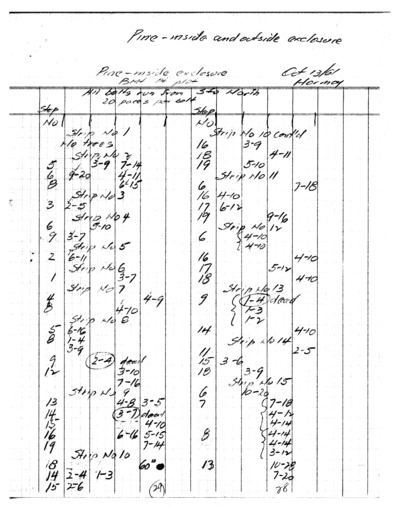 Pine-inside and outside exclosure
Pine-inside exclosure Oct 13/61
Hermay
All belts run from S to North
20 paces per belt
Stop
No
Strip No 1
No trees
Strip No 2
5 3-9 7-14
6 9-20 4-11
8 6-15
Strip No 3
3 2-5
Strip No 4
6 5-10
9 3-7
Strip No 5
2 6-11
Strip No 6
1 3-7
Strip No 7
4 4-9
8 4-10
Strip No 8
5 6-16
8 1-4
3-9
9 2-4 dead
12 3-10
7-16
Strip No 9
13 4-8 3-5
14 3-7 dead
15 4-10
16 6-16 5-15
19 7-14
Strip No 10
18 60"
14 2-4 1-3
15 2-6
29
Stop
No
Strip No 10 cont'd
16 3-9
18 4-11
19 5-10
Strip No 11
6 7-18
16 4-10
17 6-12
19 9-16
Strip No 12
6 4-10
4-10
16 4-10
17 5-12
18 4-10
Strip No 13
9 1-4 dead
1-3
1-2
14 4-10
Strip No 14
11 2-5
15 3-6
18 3-9
Strip No 15
6 10-20
7 7-18
4-12
4-14
8 4-14
4-14
3-12
13 10-28
7-20
28